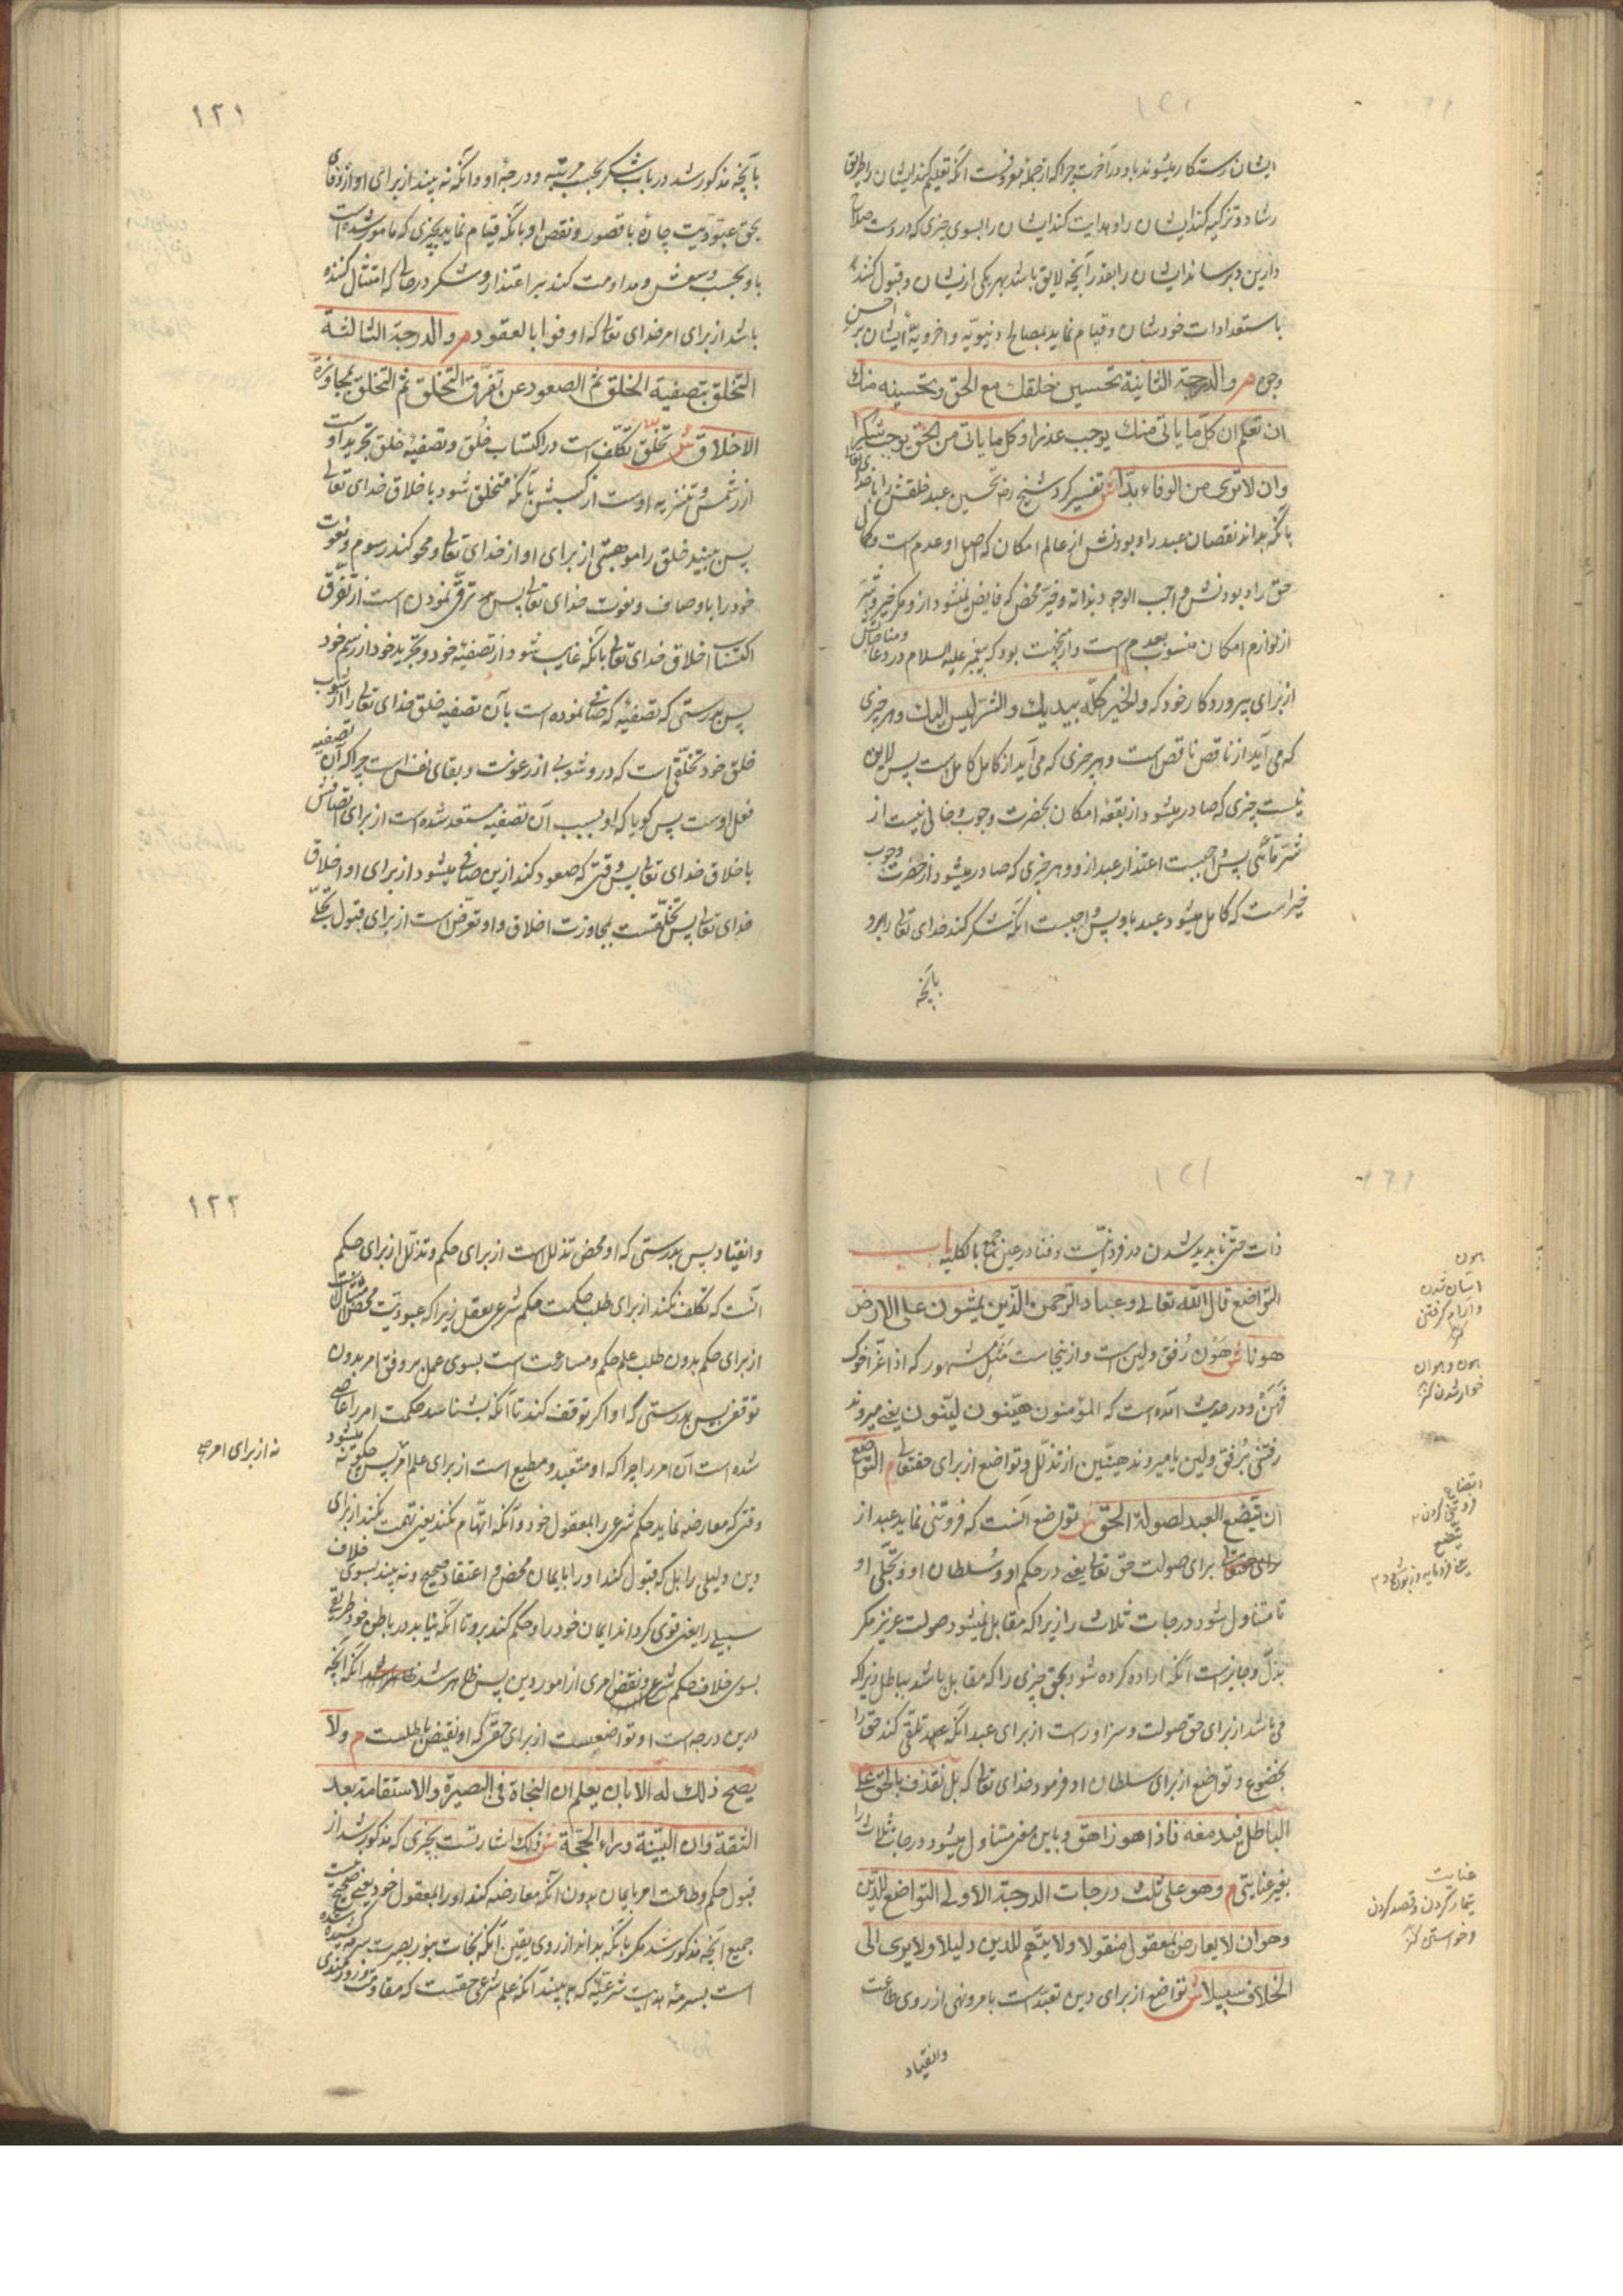 ایشان رستکار میشوند باو در آخرت چراکه از جمله معروفست آنکه تعلیم کند ایشان را طریق
رشاد و تزکیه کند ایشان را و هدایت کند ایشان را بسوی چیزی که دروست صلاح
دارین و برساند ایشان را بقدر آنچه لایق باشد بهر یکی از ایشان و قبول کنند
باستعدادات خودشان و قیام نماید بمصالح دنیویه و اخرویه ایشان بر احسن
وجوه م والدرجة الثانیة تحسین خلقك مع الحق وتحسینه منك
ان تعلم ان کل ما یاتی منك یوجب عذرا وکل ما یاتی من الحق یوجب شکرا
وان لا تری من الوفاء بدا ش تفسیر کرد شیخ رضه تحسین عبد خلقش را با خدای تعالی
بآنکه بداند نقصان عبد را و بودنش از عالم امکان که اصل او عدم است و کمال
حق را و بودنش واجب الوجود بذاته و خیر محض که فایض نمیشود ازو مکر خیر و شر
از لوازم امکان منسوب بعدم است و ازینجهت بود که پیغمبر علیه السلام در دعا و مناجاتش
از برای پروردکار خود که والخیر کلّه بیدیك والشر لیس الیك و هر چیزی
که می آید از ناقص ناقص است و هر چیزی که می آید از کامل کامل است پس لاین
نیست چیزی که صادر میشود از بقعهٔ امکان بحضرت وجوب و خالی نیست از
شر مّائی پس واجبست اعتذار عبد ازو و هر چیزی که صادر میشود از حضرت وجوب
خیر است که کامل میشود عبد باو پس واجبست آنکه شکر کند خدای تعالی را برو
بآنچه
۱۲۱
بآنچه مذکور شد در باب شکر بحسب مرتبه و درجهٔ او و آنکه نه بیند از برای او از وفای
بحق عبودیت چارهٔ با قصور و نقص او بآنکه قیام نماید بچیزی که مامور شده است
باو بحسب وسعش و مداومت کند بر اعتذار و شکر در حالی که امتثال کننده
باشد از برای امر خدای تعالی که اوفوا بالعقود م والدرجة الثالثة
التخلق بتصفیة الخلق ثم الصعود عن تفرّق التخلق ثم التخلق بمجاوزة
الاخلاق ش تخلق تکلّف است در اکتساب خُلق و تصفیهٔ خلق تجرید اوست
از رسمش و تنزیه اوست از کسبش بآنکه متخلق شود باخلاق خدای تعالی
پس بیند خلق را موهبتی از برای او از خدای تعالی و محو کند رسوم و نعوت
خود را باوصاف و نعوت خدای تعالی پس ترقی نمودن است از تفرق
اکتساب اخلاق خدای تعالی بآنکه غایب شود از تصفیهٔ خود و تجرید خود از رسم خود
پس بدرستی که تصفیهٔ که صافی نموده است بآن تصفیه خلق خدای تعالی را از شوب
خلق خود تخلّقی است که درو شوبی از رعونت و بقای نفس است چراکه آن تصفیه
فعل اوست پس کویا که او بسبب آن تصفیه مستعد شده است از برای اتصافش
باخلاق خدای تعالی پس وقتی که صعود کند ازین صافی میشود از برای او اخلاق
خدای تعالی پس تخلّقست بمجاوزت اخلاق و او تعرّض است از برای قبول تجلّی
ذات حتی ناپدید شدن در فردانیّت و فنا در عین جمع بالکلیه باب
التواضع قال الله تعالی وعباد الرحمن الّذین یمشون علی الارض
هونا ش هَوْن رُفق و لین است و ازینجاست مَثَلِ مشهور که اذا عَزّ اخوك
فَهُنْ و در حدیث آمده است که المؤمنون هیّنون لیّنون یعنی میروند
رفتنی برُفق و لین یا میروند هیّنین از تذلّل و تواضع از برای حقتعالی م التواضع
ان یتّضع العبد لصولة الحق ش تواضع آنست که فروتنی نماید عبد از
برای صولت حق تعالی یعنی در حکم او و سُلطان او و تجلّی او
تا متناول شود درجات ثلاث را زیراکه مقابل نمیشود صولت عزیز مکر
بذلّ و جایز است آنکه اراده کرده شود بحق چیزی را که مقابل باشد بباطل زیراکه
می باشد از برای حق صولت و سزاور است از برای عبد آنکه تلقی کند حق را
بخضوع و تواضع از برای سلطان او فرمود خدای تعالی که بل نقذف بالحق علی
الباطل فیدمغه فاذا هو زاهق و باین معنی متناول میشود درجات ثلاث را
بغیر عنایتی م وهو علی ثلث درجات الدرجة الاولی التواضع للدّین
وهو ان لا یعارض بمعقول منقولا ولا یتّهم للدین دلیلا ولا یری الی
الخلاف سبیلا ش تواضع از برای دین تعبّد است بامر و نهی از روی طاعت
وانقیاد
هون
آسان شدن
و آرام کرفتن
کنز
هون و هوان
خوار شدن کنز
اتضاع
یتّضع
عنایت
تیمار کردن و قصد کردن
و خواستن کنز
۱۲۲
وانقیاد پس بدرستی که او محض تذلل است از برای حکم و تذلّل از برای حکم
آنست که تکلف نکند از برای طلب حکمت حکم شرعی بعقل زیراکه عبودیّت محض امتثال است
از برای حکم بدون طلب علم حکم و مسارعت است بسوی عمل بر وفق امر بدون
توقف پس بدرستی که او اکر توقف کند تا آنکه بشناسد حکمت امر را عاصی میشود
شده است آن امر را چراکه او متعبّد و مطیع است از برای علم امر پس چکونه نه
نه از برای امر صح
وقتی که معارضه نماید حکم شرعی را بمعقول خود و آنکه اتّهام نکند یعنی تهمت نکند از برای
دین دلیلی را بل که قبول کند او را بایمان محض و اعتقاد صحیح و نه بیند بسوی خلاف
سبیلی را یعنی قوی کرداند ایمان خود را و حکم کند برو تا آنکه نیابد در باطن خود طریقی
بسوی خلاف حکم شرع و نقض امری از امور دین پس ظاهر شد آنکه آنچه
درین درجه است او تواضعست از برای حقی که او نقیض باطلست م ولا
یصح ذلك له الا بان یعلم ان النجاة فی البصیرة والاستقامة بعد
الثقة وان البیّنة وراء الحجّة ش ذلك اشارتست بچیزی که مذکور شد از
قبول حکم و طاعت امر بایمان بدون آنکه معارضه کند او را بمعقول خود یعنی صحیح نیست
جمیع آنچه مذکور شد مکر بآنکه بداند از روی یقین آنکه نجات بنور بصیرت
است بسرمهٔ هدایت شرعیّه که بیند آنکه علم شرعی حقست که مقاومت